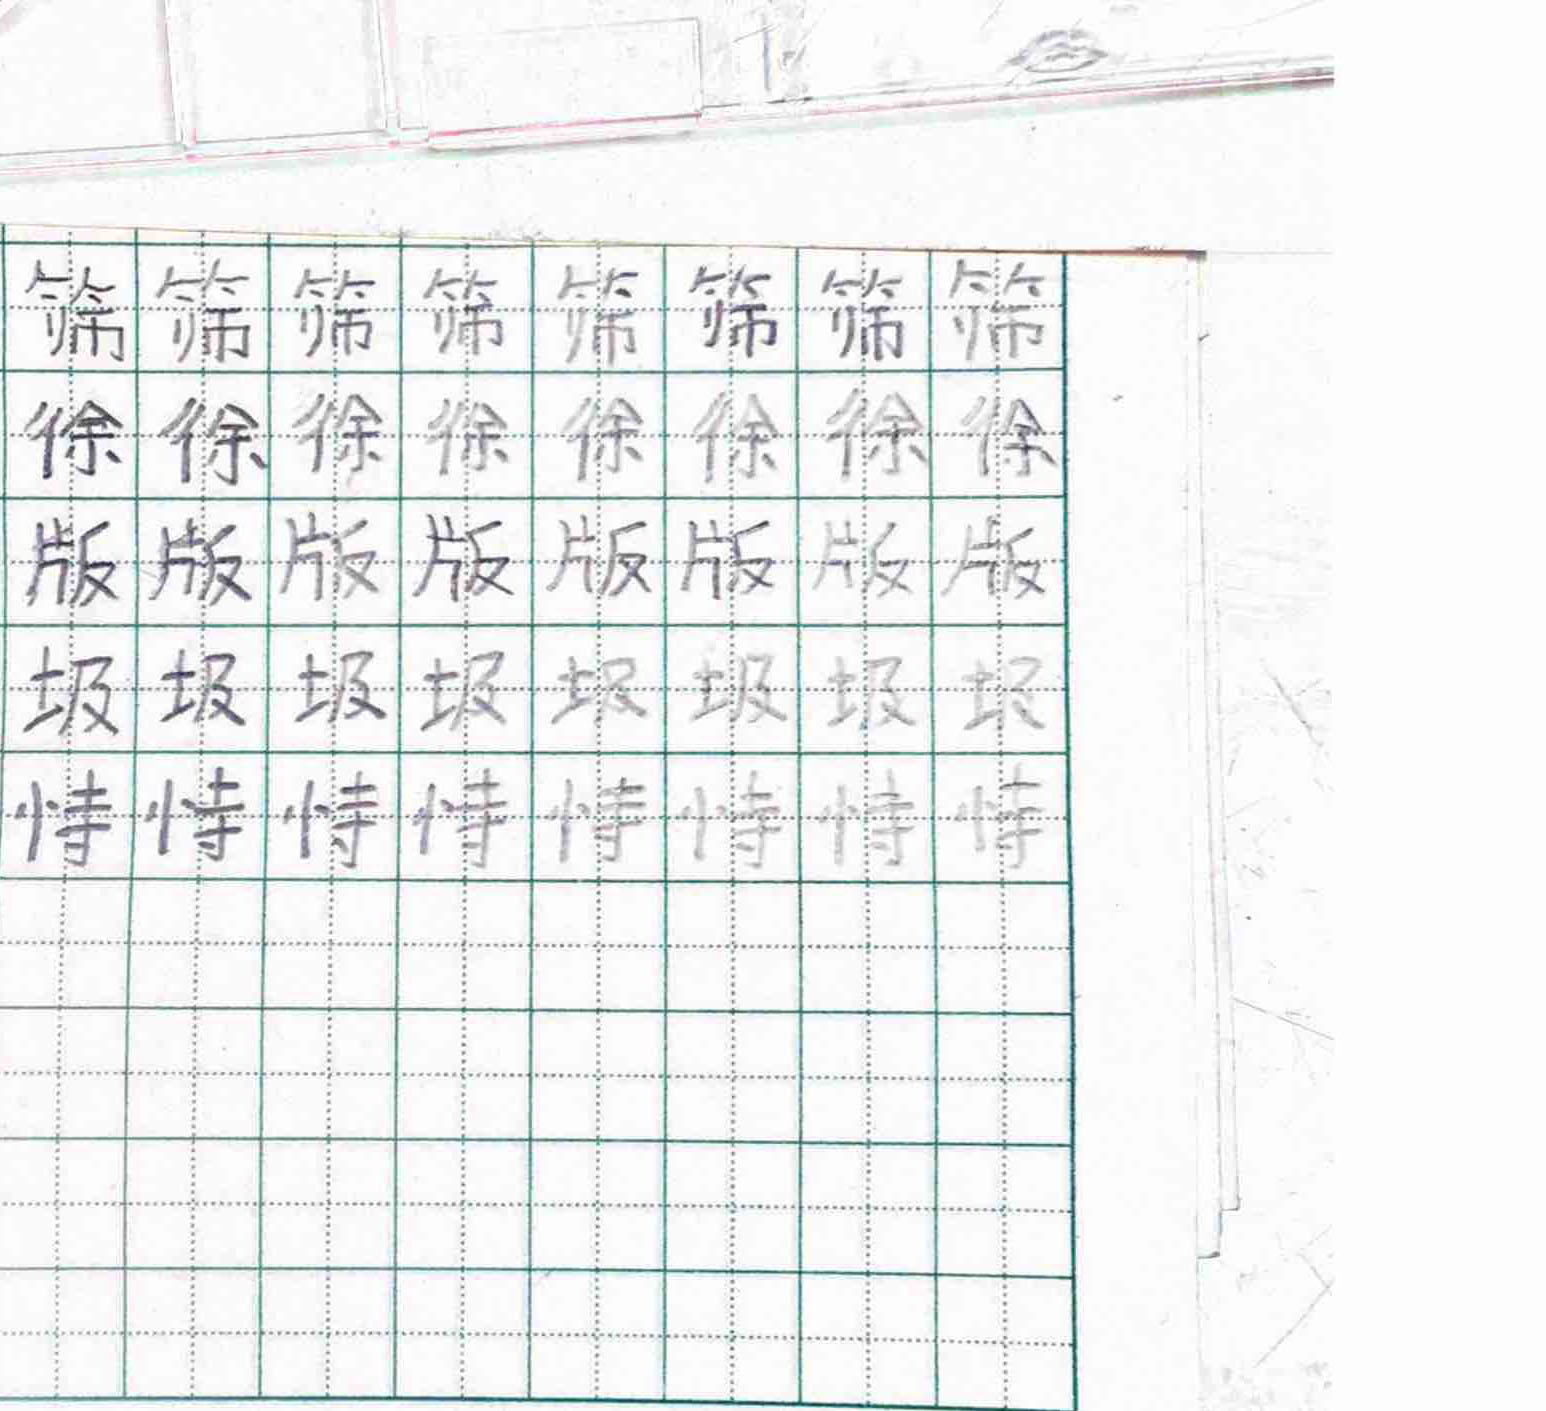 筛筛筛筛筛筛筛筛
徐徐徐徐徐徐徐徐
版版版版版版版版
圾圾圾圾圾圾圾圾
恃恃恃恃恃恃恃恃